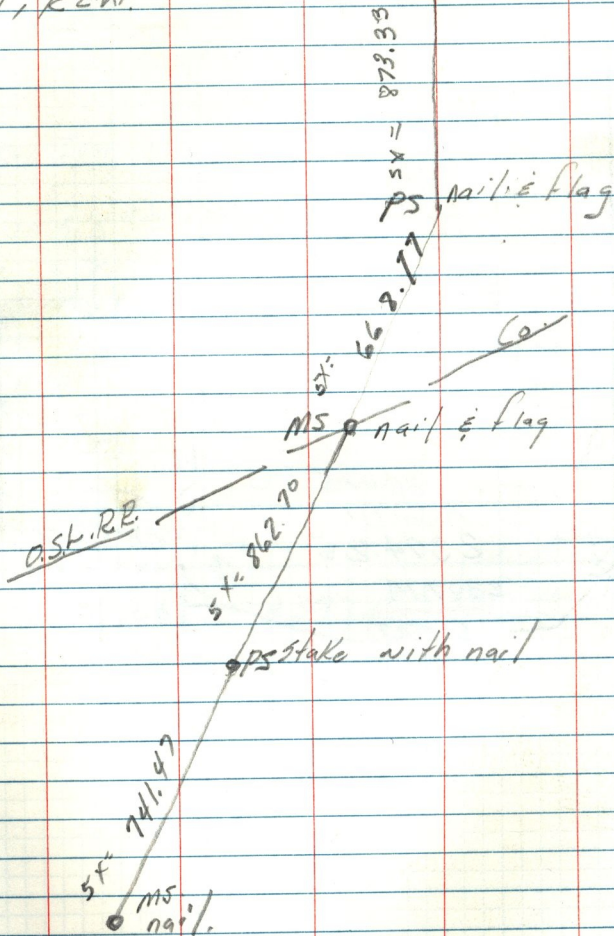 5x = 873.33
PS nail & flag
5x= 668.77
Co.
MS nail & flag
O.S.L.R.R.
5x= 862.70
PS Stake with nail
5x= 741.47
MS
nail.